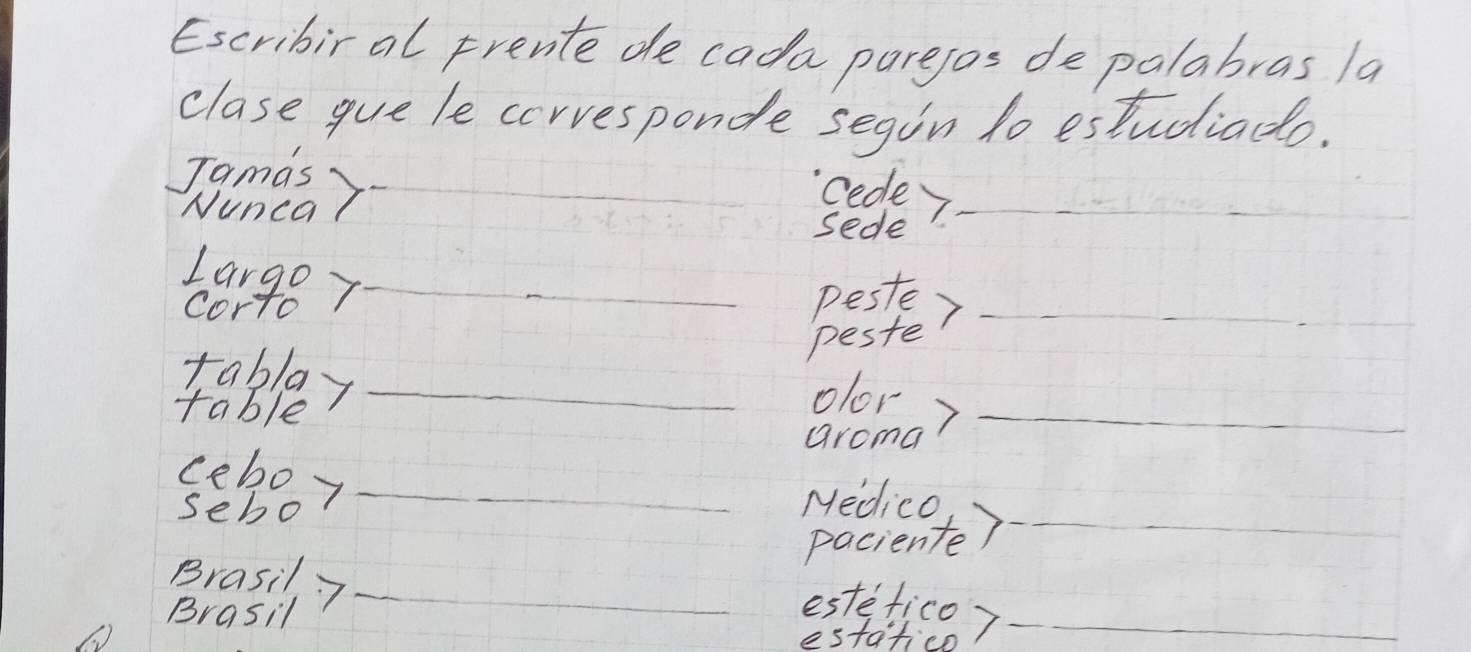 Escribir al frente de cada parejas de palabras la
clase que le corresponde según lo estudiado.
Jamás
Nunca
Largo
corto
tabla
table
cebo
sebo
Brasil
Brasil
cede
sede
peste
peste
olor
aroma
Médico
paciente
estético
estático